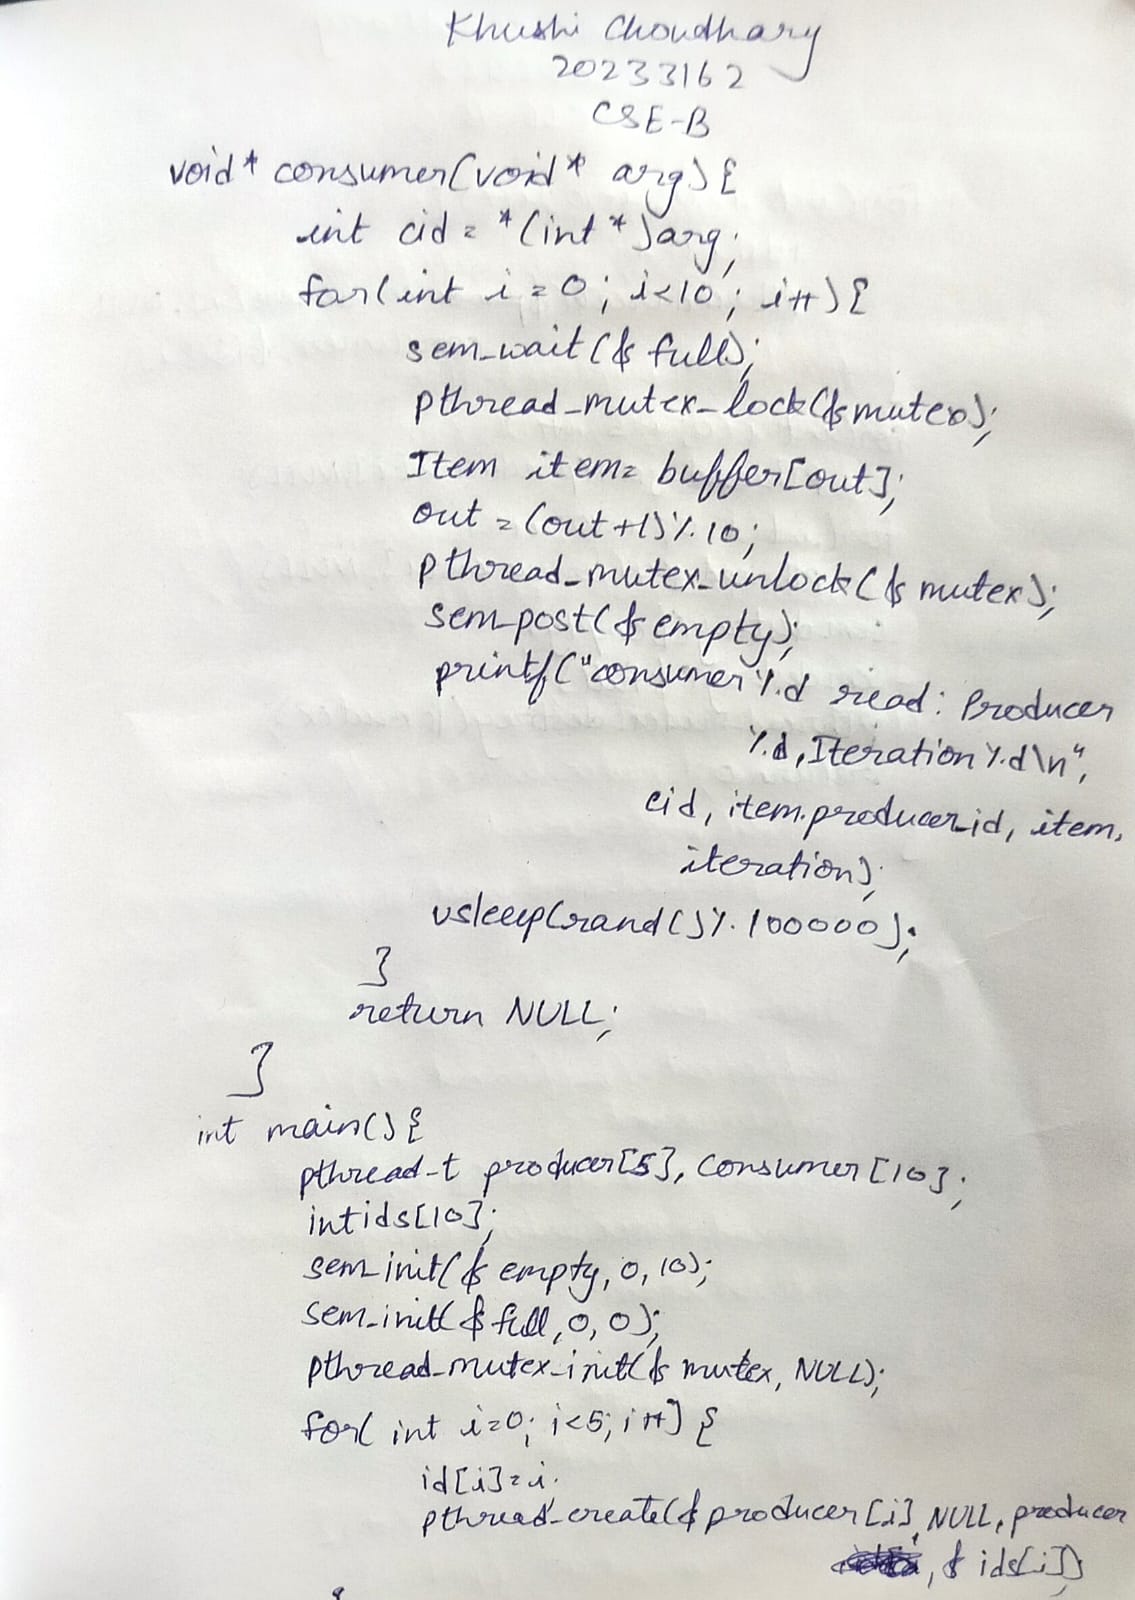 Khushi Choudhary
20233162
CSE-B
void* consumer(void* arg){
int cid = *(int*)arg;
for(int i=0; i<10; i++){
sem_wait(&full);
pthread_mutex_lock(&mutex);
Item item= buffer[out];
out = (out+1)%10;
pthread_mutex_unlock(&mutex);
sem_post(&empty);
printf("consumer %d read: Producer
%d, Iteration %d\n",
cid, item.producer_id, item.
iteration);
usleep(rand()%100000);
}
return NULL;
}
int main(){
pthread_t producer[5], consumer[10];
int ids[10];
sem_init(&empty, 0, 10);
sem_init(&full, 0, 0);
pthread_mutex_init(&mutex, NULL);
for( int i=0; i<5; i++) {
id[i]=i;
pthread_create(&producer[i], NULL, producer
, &ids[i]);